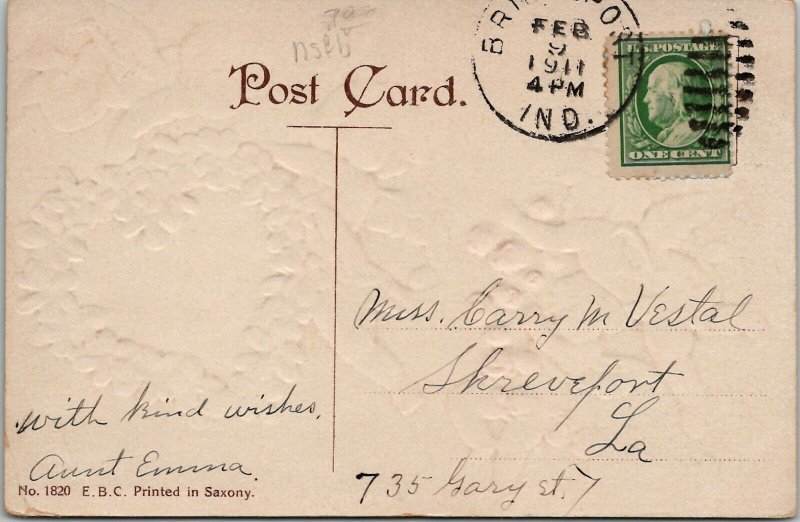 Post Card.
FEB
9
1911
4 PM
IND.
U.S. POSTAGE
ONE CENT
Miss. Carry M Vestal
Shreveport
La
735 Gary st.
with kind wishes,
Aunt Emma.
No. 1820 E.B.C. Printed in Saxony.